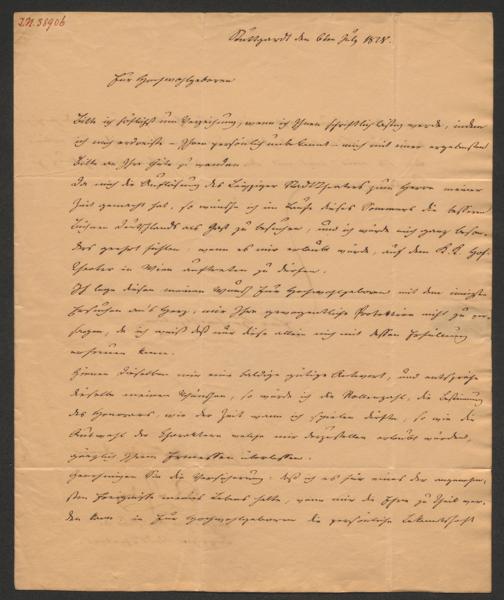 I.N. 38906
Stuttgardt den 6ten July 1828.
Euer Hochwohlgeboren
Bitte ich höflichst um Verzeihung, wenn ich Ihnen schriftlich lästig werde, indem
ich mich erdreiste – Ihnen persönlich unbekannt – mich mit einer ergebensten
Bitte an Ihre Güte zu wenden.
Da mich die Auflösung des Leipziger Stadttheaters zum Herrn meiner
Zeit gemacht hat, so wünsche ich im Laufe dieses Sommers die bessern
Bühnen Deutschlands als Gast zu besuchen, und ich würde mich ganz beson-
ders geehrt fühlen, wenn es mir erlaubt würde, auf dem K. K. Hof-
theater in Wien auftreten zu dürfen.
Ich lege diesen meinen Wunsch Euer Hochwohlgeboren mit dem innigsten
Ersuchen an's Herz, mir Ihre gewogentliche Protektion nicht zu ver-
sagen, da ich weiß daß nur diese allein mich mit dessen Erfüllung
erfreuen kann.
Gönnen Dieselben mir eine baldige gütige Antwort, und entspräche
dieselbe meinen Wünschen, so würde ich die Rollenzahl, die Bestimmung
des Honorars, wie der Zeit wann ich spielen dürfte, so wie die
Auswahl der Charaktere welche mir darzustellen erlaubt würden,
gänzlich Ihrem Ermessen überlassen.
Genehmigen Sie die Versicherung: daß ich es für eines der angenehm-
sten Ereignisse meines Lebens halte, wenn mir die Ehre zu Theil wer-
den kann: in Euer Hochwohlgeboren die persönliche Bekanntschaft